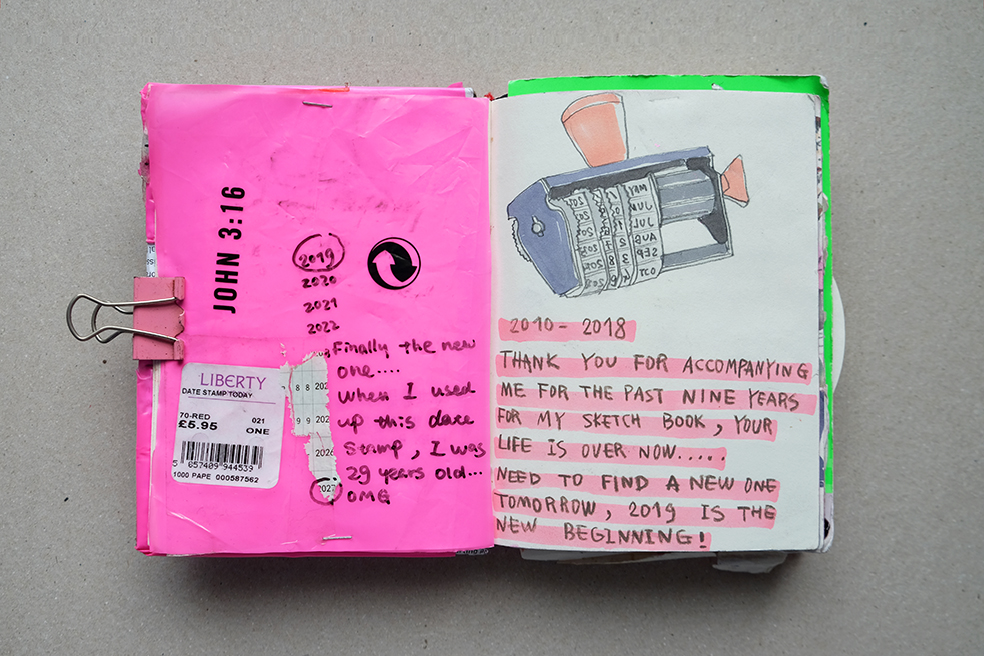 JOHN 3:16
2019
2020
2021
2022
Finally the new
one....
When I used
up this date
Stamp, I was
29 years old...
OMG
8 8 202
9 9 202
2026
2027
LIBERTY
DATE STAMP TODAY
70-RED 021
£5.95 ONE
5 057409 944539
1000 PAPE 000587562
MAY
JUN
JUL
AUG
SEP
OCT
2010 - 2018
THANK YOU FOR ACCOMPANYING
ME FOR THE PAST NINE YEARS
FOR MY SKETCH BOOK, YOUR
LIFE IS OVER NOW.....
NEED TO FIND A NEW ONE
TOMORROW, 2019 IS THE
NEW BEGINNING!